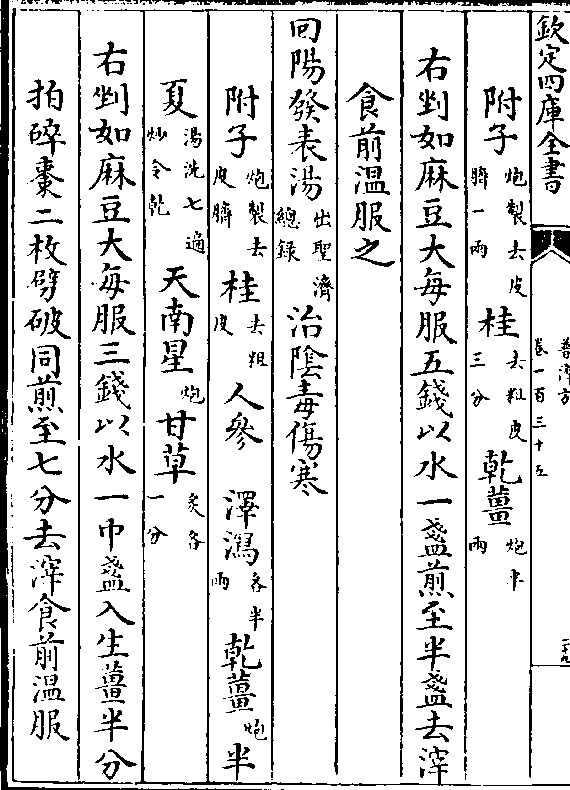 欽定四庫全書 普濟方 卷一百三十五
附子炮製去皮臍一兩 桂去粗皮三分 乾薑炮半兩
右剉如麻豆大每服五錢以水一盞煎至半盞去滓
食前温服之
回陽發表湯出聖濟總録 治陰毒傷寒
附子炮製去皮臍 桂去粗皮 人參 澤瀉各半兩 乾薑炮 半
夏湯洗七遍炒令乾 天南星炮 甘草炙各一分
右剉如麻豆大每服三錢以水一中盞入生薑半分
拍碎棗二枚劈破同煎至七分去滓食前温服